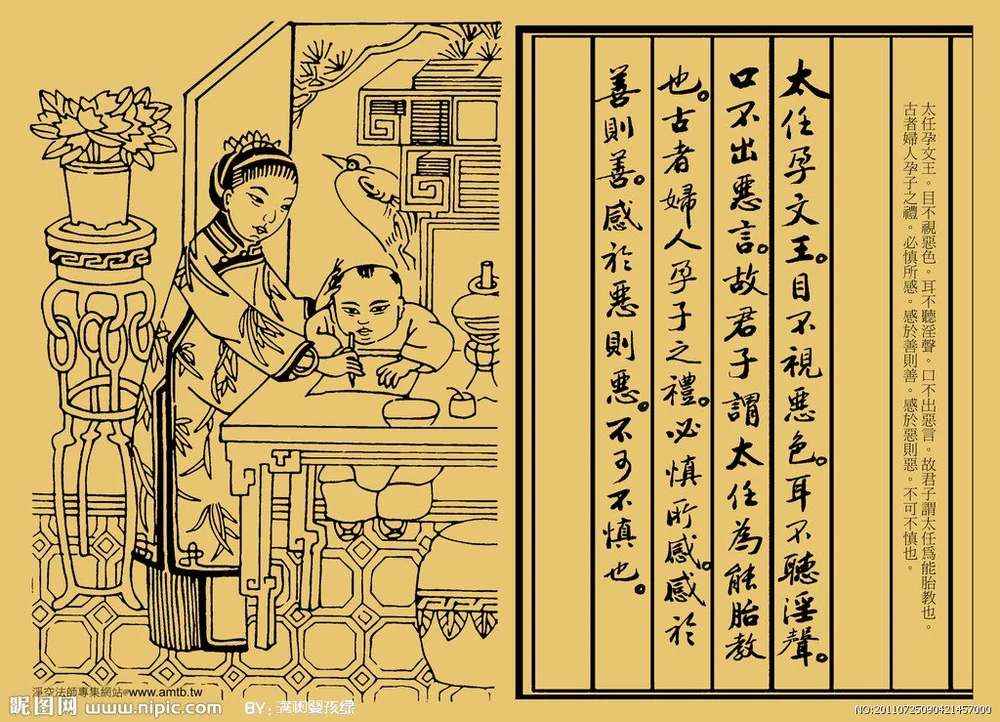 太任孕文王。目不視惡色。耳不聽淫聲。口不出惡言。故君子謂太任爲能胎教也。
古者婦人孕子之禮。必慎所感。感於善則善。感於惡則惡。不可不慎也。
太任孕文王。目不視惡色。耳不聽淫聲。
口不出惡言。故君子謂太任為能胎教
也。古者婦人孕子之禮。必慎所感。感於
善則善。感於惡則惡。不可不慎也。
淨空法師專集網站@www.amtb.tw
昵图网 www.nipic.com BY: 满树婴孩绿
NO:20110725090421457000